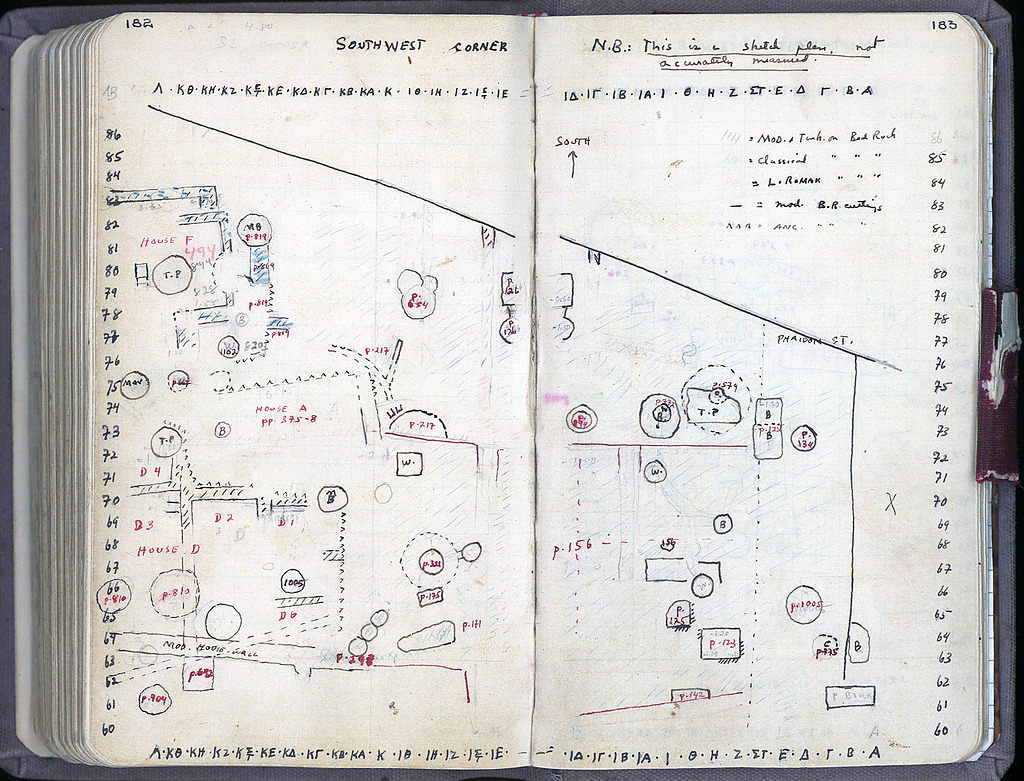 182
SOUTHWEST CORNER
Λ · ΚΘ · ΚΗ · ΚΖ · ΚΣΤ · ΚΕ · ΚΔ · ΚΓ · ΚΒ · ΚΑ · Κ · ΙΘ · ΙΗ · ΙΖ · ΙΣΤ · ΙΕ
86
85
84
83
82
81
80
79
78
77
76
75
74
73
72
71
70
69
68
67
66
65
64
63
62
61
60
HOUSE F
494
T.P
P.819
P.819
P.819
P.819
B
1102
P.217
HOUSE A
PP. 375-8
B
P.217
T.P
W.
D 4
B
D 3
D 2
D 1
HOUSE D
1005
P.810
P.810
P.175
D 6
P.171
MOD.
WALL
P.904
Λ · ΚΘ · ΚΗ · ΚΖ · ΚΣΤ · ΚΕ · ΚΔ · ΚΓ · ΚΒ · ΚΑ · Κ · ΙΘ · ΙΗ · ΙΖ · ΙΣΤ · ΙΕ
183
N.B.: This is a sketch plan, not
accurately measured.
ΙΔ · ΙΓ · ΙΒ · ΙΑ · Ι · Θ · Η · Ζ · ΣΤ · Ε · Δ · Γ · Β · Α
SOUTH
= Mod. & Turk. on Bed Rock
= Classical " " "
= L. ROMAN " " "
= mod. B.R. cuttings
= ANC. " "
86
85
84
83
82
81
80
79
78
77
76
75
74
73
72
71
70
69
68
67
66
65
64
63
62
61
60
PHAIDON ST.
P.579
T.P
B
B
P.134
W.
B
P.156
156
P.1005
P.125
P.123
P.775
B
P.142
ΙΔ · ΙΓ · ΙΒ · ΙΑ · Ι · Θ · Η · Ζ · ΣΤ · Ε · Δ · Γ · Β · Α